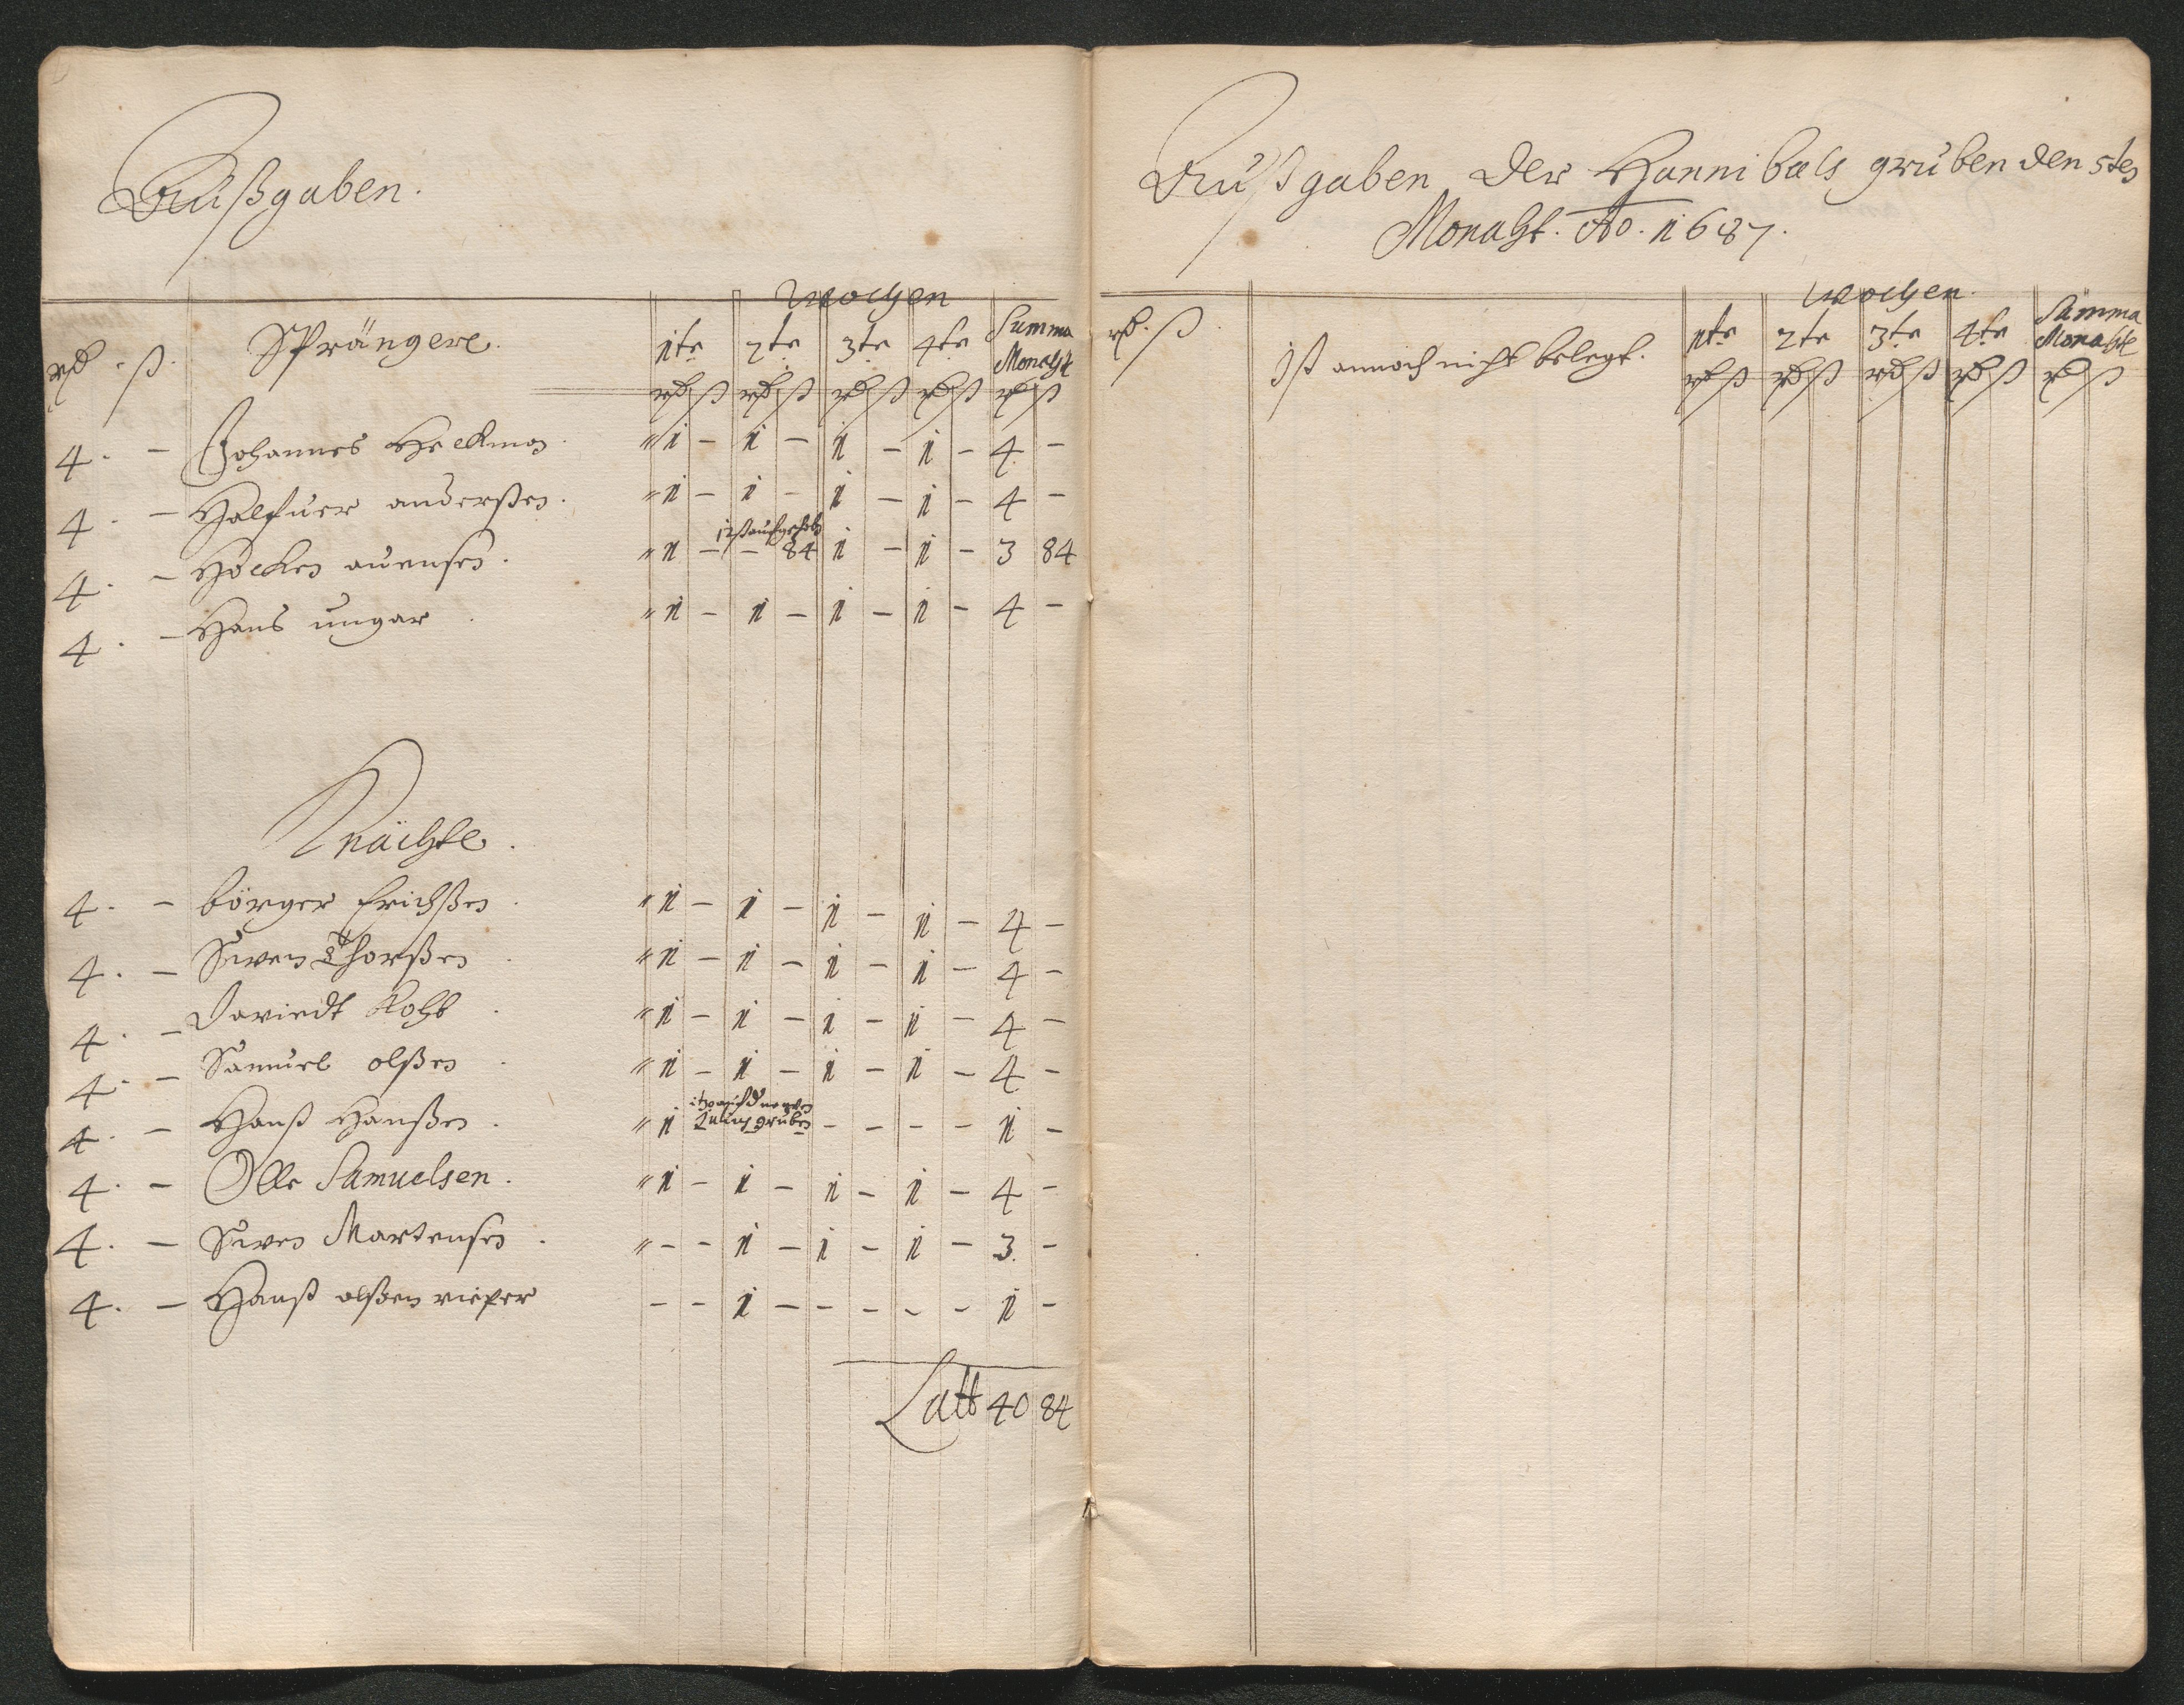 Außgaben.
Wochen
rd. ß.
Sprängere.
1te 2te 3te 4te Summa Monaht
rd ß rd ß rd ß rd ß rd ß
4. – Johannes Heckman. " 1 – 1 – 1 – 1 – 4 –
4. – Halfuer anderßen. " 1 – 1 – 1 – 1 – 4 –
12 ß
4. – Höcken auensen. " 1 – – 84 1 – 1 – 3 84
4. – Hans ungar. " 1 – 1 – 1 – 1 – 4 –
Knächte.
4. – börger Erichßen. " 1 – 1 – 1 – 1 – 4 –
4. – Swen Thorßen. " 1 – 1 – 1 – 1 – 4 –
4. – Daviedt Kohl. " 1 – 1 – 1 – 1 – 4 –
4. – Samuel olßen. " 1 – 1 – 1 – 1 – 4 –
gruben
4. – Hanß Hanßen. " 1 – – – – 1 –
4. – Olle Samuelsen. " 1 – 1 – 1 – 1 – 4 –
4. – Swen Martensen. " – – 1 – 1 – 1 – 3. –
4. – Hanß olßen – – 1 – – – – – 1 –
Latt 40 84
Außgaben der Hannibals gruben den 5ten
Monaht. Ao. 1687.
Wochen.
rd. ß.
Ist annoch nicht belegt.
1te 2te 3te 4te Summa Monaht
rd ß rd ß rd ß rd ß rd ß